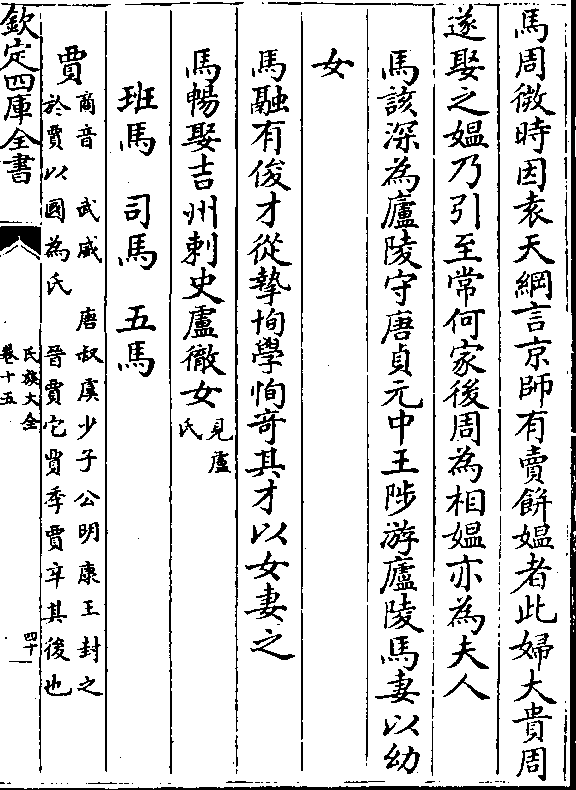 馬周微時因袁天綱言京師有賣餅媼者此婦大貴周
遂娶之媼乃引至常何家後周為相媼亦為夫人
馬該深為廬陵守唐貞元中王陟游廬陵馬妻以幼
女
馬融有俊才從摯恂學恂奇其才以女妻之
馬暢娶吉州刺史盧徹女見盧氏
班馬 司馬 五馬
賈商音 武威 唐叔虞少子公明康王封之
於賈以國為氏 晉賈它賈季賈辛其後也
欽定四庫全書
氏族大全
卷十五
四十一